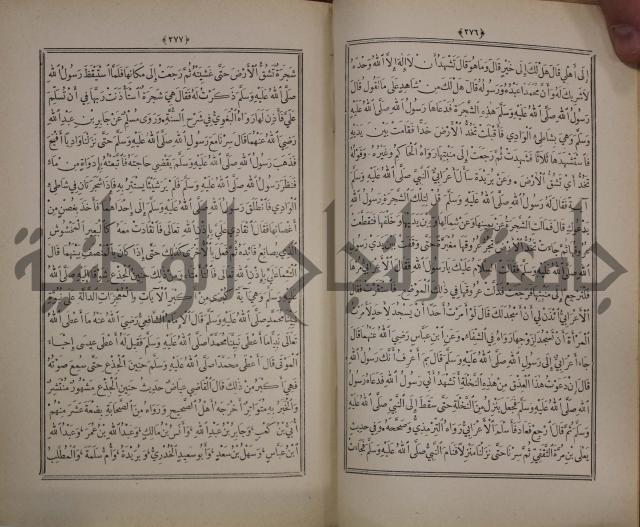 ﴿٢٧٦﴾
إلى أهلي قال هل لك إلى خير قال وما هو قال تشهد أن لا إله إلا الله وحده
لا شريك له وأن محمدا عبده ورسوله قال هل لك من شاهد على ما تقول قال
رسول الله صلى الله عليه وسلم هذه الشجرة فدعاها رسول الله صلى الله عليه
وسلم وهي بشاطئ الوادي فأقبلت تخد الأرض خدا فقامت بين يديه
فاستشهدها ثلاثا فشهدت ثم رجعت إلى منبتها رواه الحاكم وغيره وقوله
تخد أي تشق الأرض وعن بريدة سأل أعرابي النبي صلى الله عليه وسلم
آية فقال له رسول الله صلى الله عليه وسلم قل لتلك الشجرة رسول الله
يدعوك قال فمالت الشجرة عن يمينها وعن شمالها وبين يديها وخلفها فتقطعت
عروقها ثم جاءت تخد الأرض تجر عروقها مغبرة حتى وقفت بين يدي رسول
الله صلى الله عليه وسلم فقالت السلام عليك يا رسول الله فقال الأعرابي مرها
فلترجع إلى منبتها فرجعت فدلت عروقها في ذلك الموضع
الأعرابي ائذن لي أن أسجد لك قال لو أمرت أحدا أن يسجد لأحد لأمرت
المرأة أن تسجد لزوجها رواه في الشفاء وعن ابن عباس رضي الله عنهما قال
جاء أعرابي إلى رسول الله صلى الله عليه وسلم قال بم أعرف أنك رسول الله
قال إن دعوت هذا العذق من هذه النخلة أتشهد أني رسول الله فدعاه رسول
الله صلى الله عليه وسلم فجعل ينزل من النخلة حتى سقط إلى النبي صلى الله عليه
وسلم ثم قال ارجع فعاد فأسلم الأعرابي رواه الترمذي وصححه وفي حديث
يعلى بن مرة الثقفي ثم سرنا حتى نزلنا منزلا فنام النبي صلى الله عليه وسلم فجاءت
﴿٢٧٧﴾
شجرة تشق الأرض حتى غشيته ثم رجعت إلى مكانها فلما استيقظ رسول الله
صلى الله عليه وسلم ذكرت له فقال هي شجرة استأذنت ربها في أن تسلم
علي فأذن لها رواه البغوي في شرح السنة وروى مسلم عن جابر بن عبد الله
رضي الله عنهما قال سرنا مع رسول الله صلى الله عليه وسلم حتى نزلنا واديا أفيح
فذهب رسول الله صلى الله عليه وسلم يقضي حاجته فاتبعته بإداوة من ماء
فنظر رسول الله صلى الله عليه وسلم فلم ير شيئا يستتر به فإذا شجرتان في شاطئ
الوادي فانطلق رسول الله صلى الله عليه وسلم إلى إحداهما فأخذ بغصن من
أغصانها فقال انقادي علي بإذن الله تعالى فانقادت معه كالبعير المخشوش
الذي يصانع قائده ثم فعل بالأخرى كذلك حتى إذا كان بالمنصف بينهما قال
التئما علي بإذن الله تعالى فالتأمتا
عليه وسلم من أكبر الآيات والمعجزات الدالة على نبوة
نبينا محمد صلى الله عليه وسلم قال الإمام الشافعي رضي الله عنه ما أعطى الله
تعالى نبيا ما أعطى نبينا محمدا صلى الله عليه وسلم فقيل له أعطى عيسى إحياء
الموتى قال أعطى محمدا صلى الله عليه وسلم حنين الجذع حتى سمع صوته
فهي أكبر من ذلك قال القاضي عياض حديث حنين الجذع مشهور منتشر
والخبر به متواتر أخرجه أهل الصحيح ورواه من الصحابة بضعة عشر منهم
أبي بن كعب وجابر بن عبد الله وأنس بن مالك وعبد الله بن عمر وعبد الله
ابن عباس وسهل بن سعد وأبو سعيد الخدري وبريدة وأم سلمة والمطلب
جامعة النجاح الوطنية